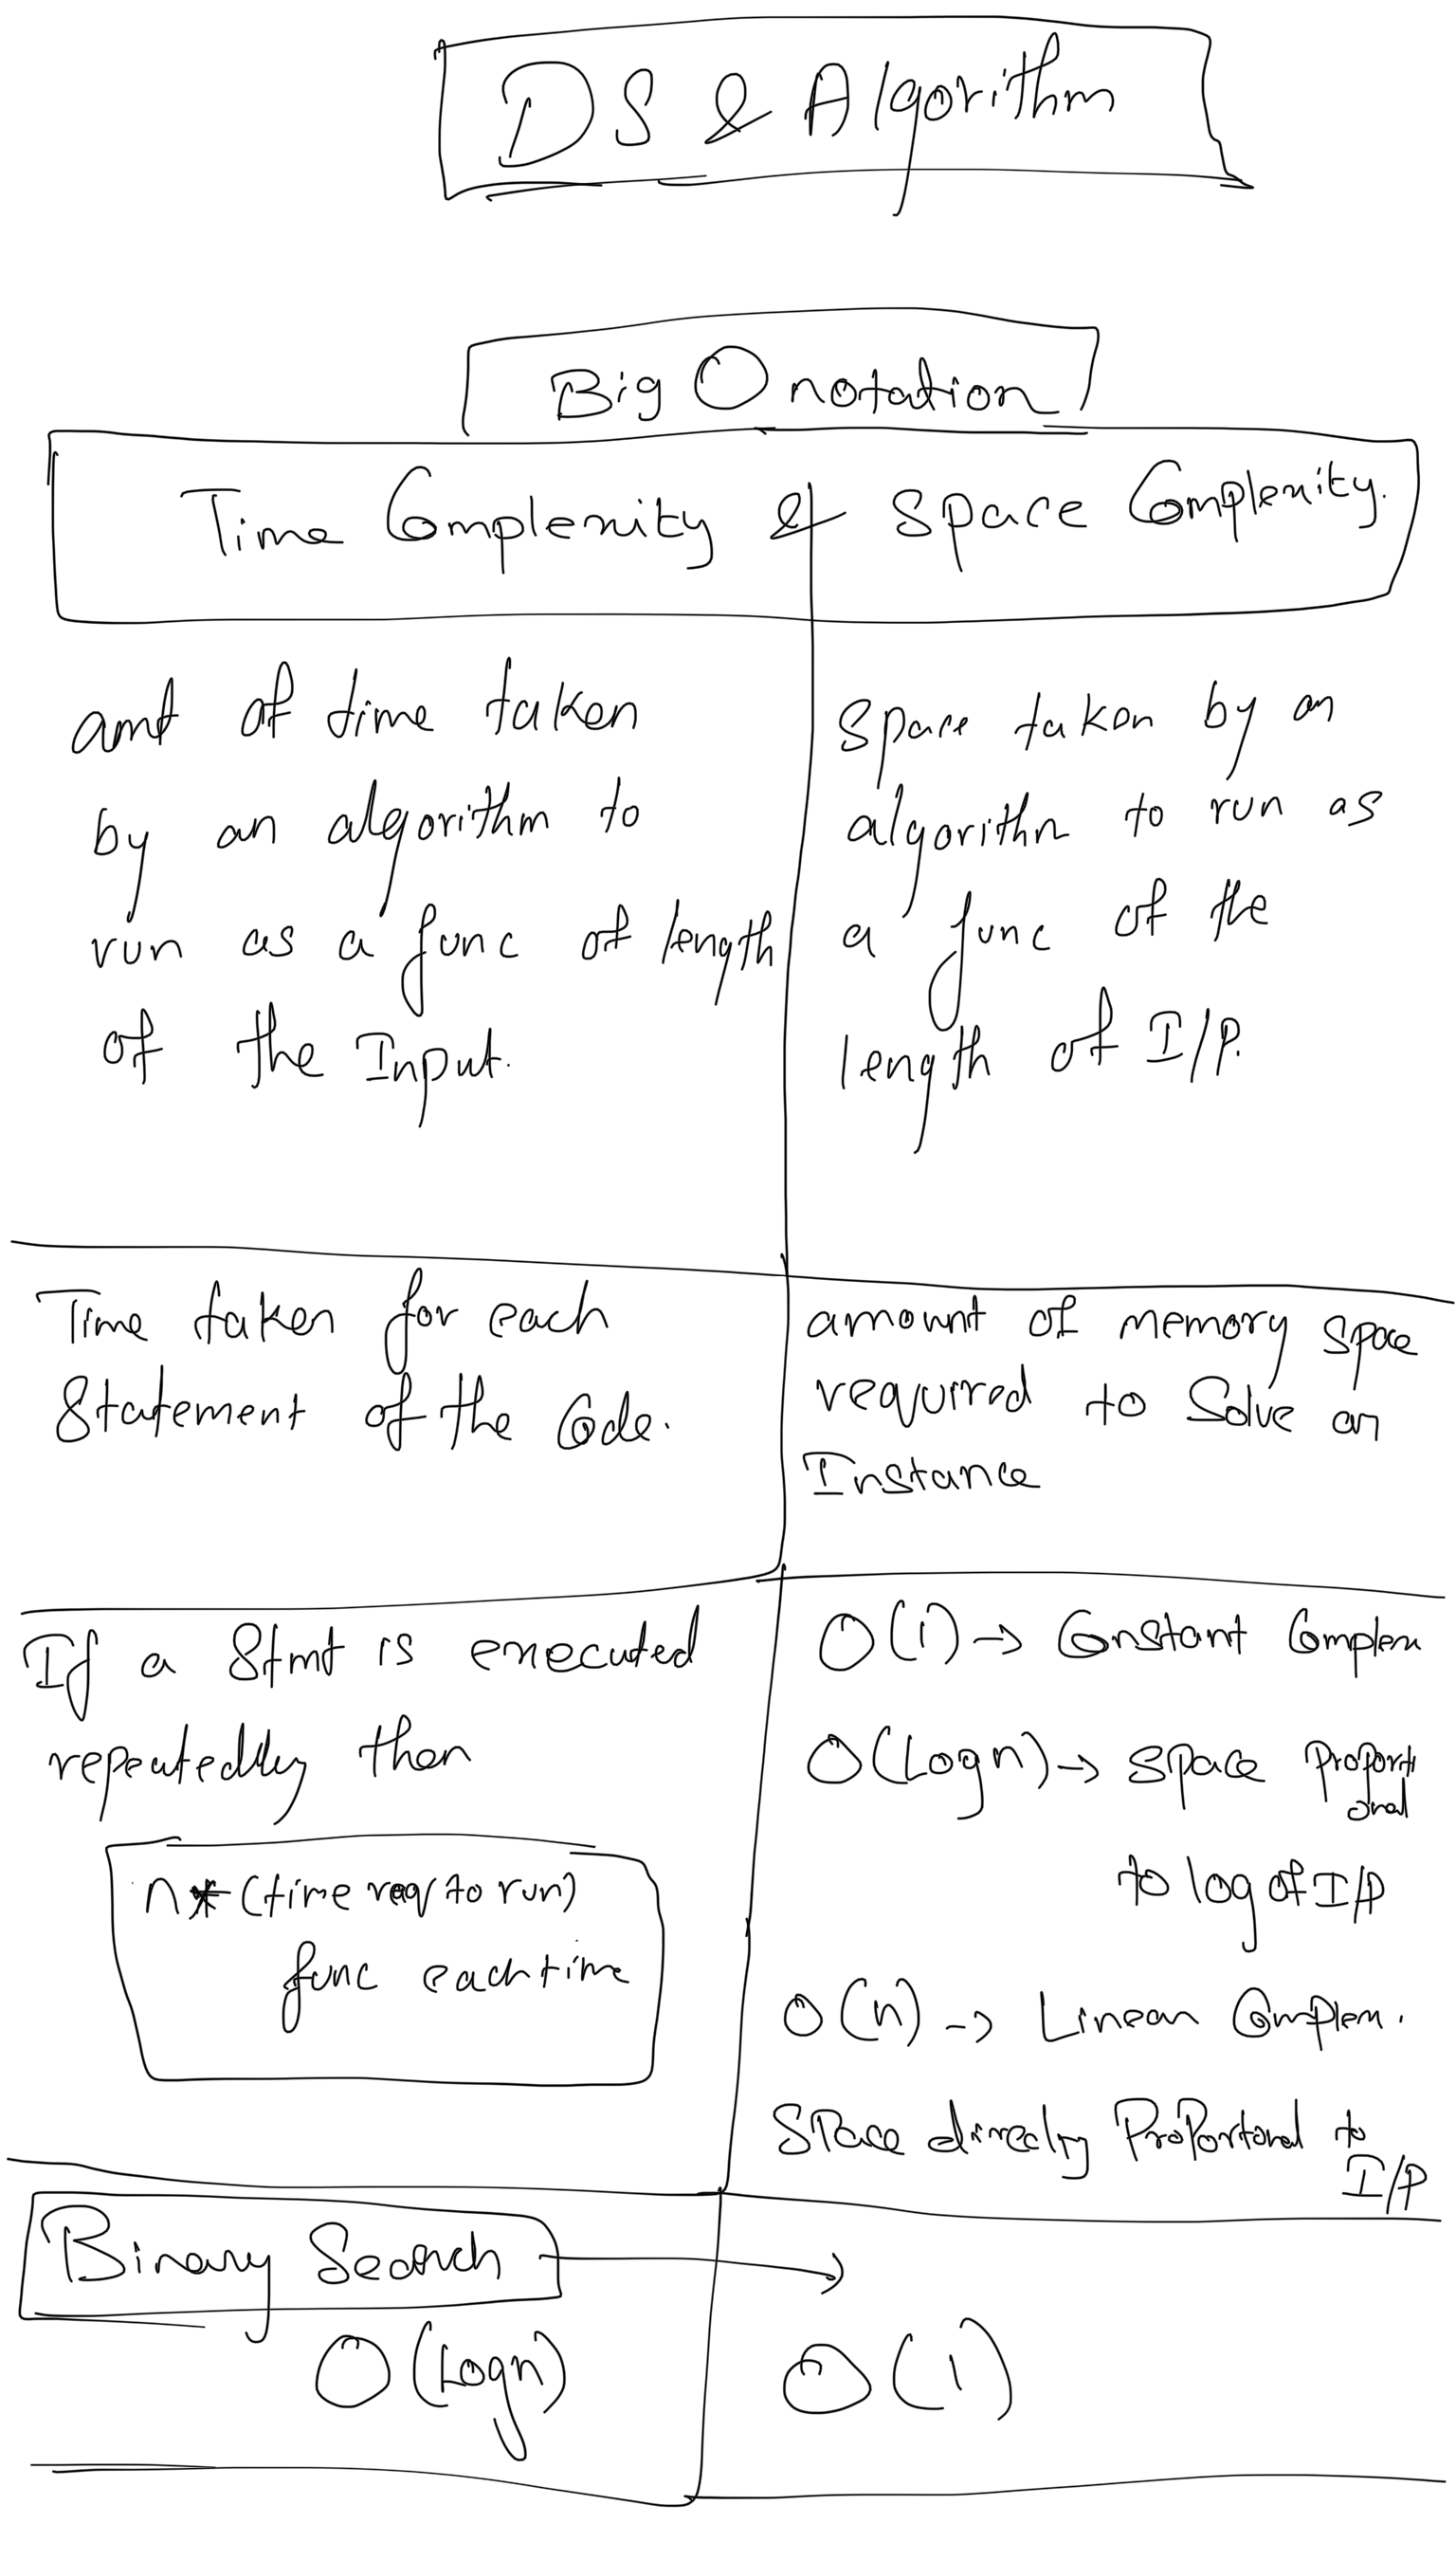 DS & Algorithm
Big O notation
Time Complexity & Space Complexity.
amt of time taken
by an algorithm to
run as a func of length
of the Input.
Space taken by an
algorithm to run as
a func of the
length of I/P.
Time taken for each
Statement of the Code.
amount of memory space
required to Solve an
Instance
If a Stmt is executed
repeatedly then
n * (time req to run)
func each time
O(1) -> Constant Complex
O(Log n) -> Space Proporti
onal
to log of I/P
O(n) -> Linear Complex.
Space directly Proportional to
I/P
Binary Search ->
O(Log n)
O(1)